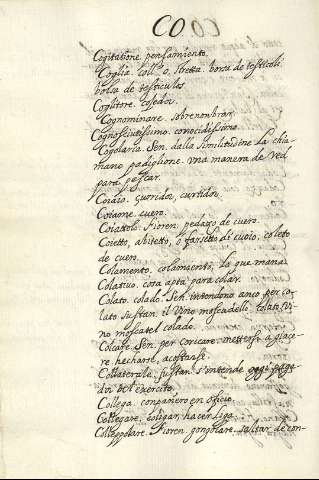 CO
Cogitatione. pensamiento.
Coglia. coll. o. stretta. borsa de testicoli.
bolsa de testiculos
Coglitore. cojedor.
Cognominare. sobrenombrar.
Cognosciutissimo. conocidissimo.
Cogolaria. Sen. dalla similitudine la chia-
mano padiglione. una manera de red
para pescar.
Coiaio. curtidor.
Coiame. cuero.
Coiattolo. Fioren. pedazo de cuero.
Coietto, o farsetto di cuoio, coleto
de cuero.
Colamento. colamiento, lo que mana
Colativo. cosa apta para colar.
Colato. colado. Sen. intendono anco per co-
lato sustan. il vino moscadello. colato, vi-
no moscatel colado.
Colcare. Sen. per coricare. mettersi a giace-
re. hecharse, acostarse
Collaterale. sustan. s'intende
del exercito.
Collega. compañero en oficio.
Collegare. coligar, hacer liga
Colleppolare. Fioren. gongolare. saltar de con-